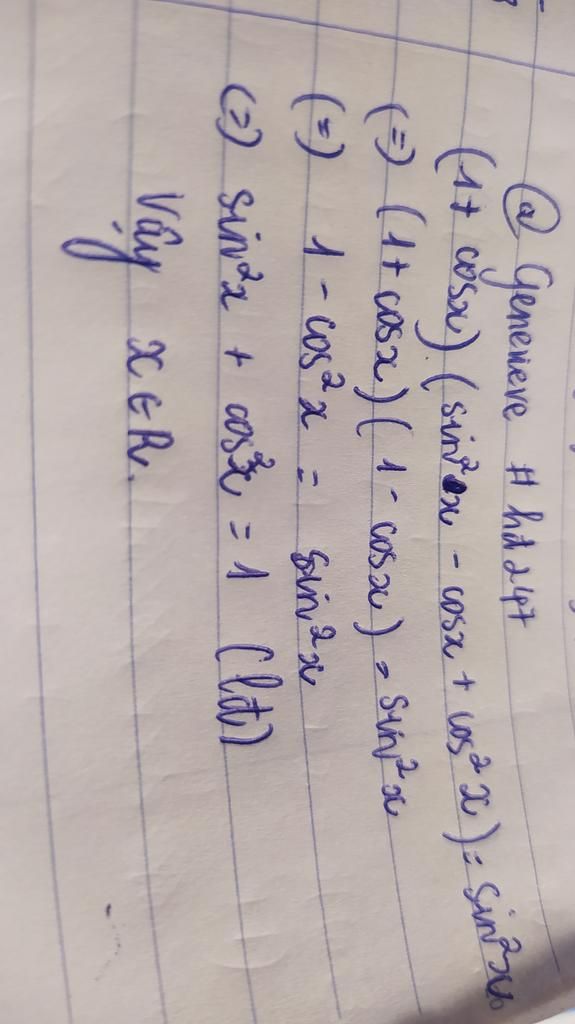 @ Genevieve # hđ247
(1 + cosx) (sin²x - cosx + cos²x) = sin²x
(=) (1 + cosx) (1 - cosx) = sin²x
(=) 1 - cos²x = sin²x
(=) sin²x + cos²x = 1 (lđ)
Vậy x ∈ R.